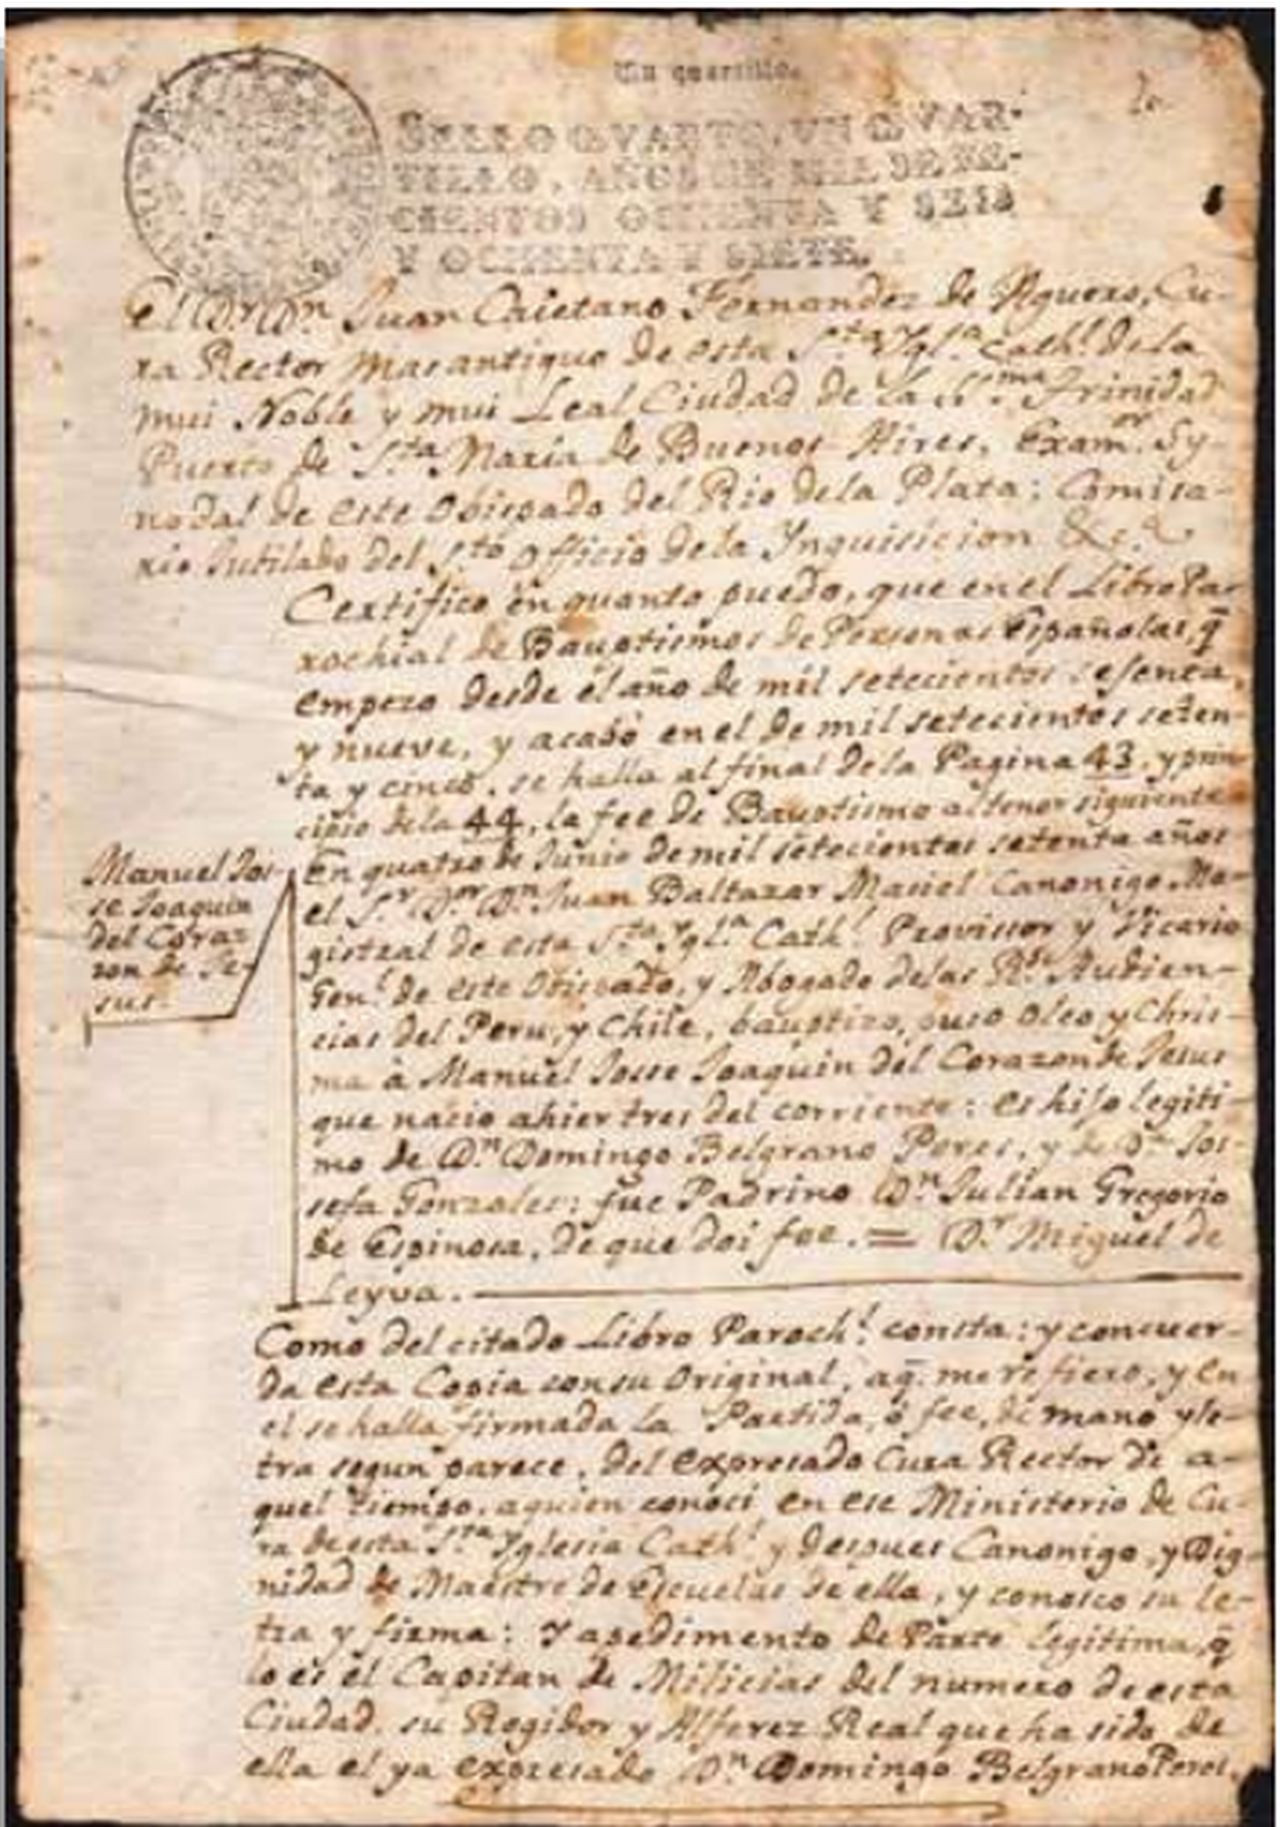 Un quartillo.
SELLO QVARTO, VN QVAR-
TILLO, AÑOS DE MIL SETE-
CIENTOS OCHENTA Y SEIS
Y OCHENTA Y SIETE.
El D.r D.n Juan Caietano Fernandez de Aguero, Cu-
ra Rector mas antiguo de esta S.ta Ygl.a Cath.l de la
mui Noble y mui Leal Ciudad de la SS.ma Trinidad
Puerto de S.ta Maria de Buenos Aires, Exam.or Sy-
nodal de este Obispado del Rio de la Plata; Comisa-
rio Jubilado del S.to Officio de la Ynquisicion &c.a
Certifico en quanto puedo, que en el Libro Pa-
rochial de Bauptismos de Personas Españolas, q̄
empezo desde el año de mil setecientos sesenta,
y nueve, y acabó en el de mil setecientos seten-
ta y cinco, se halla al final de la Pagina 43. y prin-
cipio de la 44, la fee de Bauptismo al tenor siguiente
Manuel Jos-
se Joaquin
del Cora-
zon de Je-
sus.
En quatro de Junio de mil setecientos setenta años
el S.r D.or D.n Juan Baltazar Maciel Canonigo Ma-
gistral de esta S.ta Ygl.a Cath.l Provissor y Vicario
Gen.l de este Obispado, y Abogado de las R.s Audien-
cias del Peru, y Chile, bauptizo, puso Oleo y Chris-
ma à Manuel Josse Joaquin del Corazon de Jesus
que nacio ahier tres del corriente: es hijo legiti-
mo de D.n Domingo Belgrano Peres, y de D.a Jos-
sefa Gonzales: fue Padrino D.n Julian Gregorio
de Espinosa, de que doi fee. = D.r Miguel de
Leyva.
Como del citado Libro Paroch.l consta: y concuer-
da esta Copia con su Original, a q̄ me refiero, y en
el se halla firmada la Partida, ó fee, de mano y le-
tra segun parece, del expresado Cura Rector de a-
quel tiempo, a quien conoci en ese Ministerio de Cu-
ra de esta S.ta Yglesia Cath.l y despues Canonigo, y Dig-
nidad de Maestre de Escuelas de ella, y conosco su le-
tra y firma: Y a pedimento de Parte legitima, q̄
lo es el Capitan de Milicias del numero de esta
Ciudad, su Regidor y Alferez Real que ha sido de
ella el ya expresado D.n Domingo Belgrano Peres,